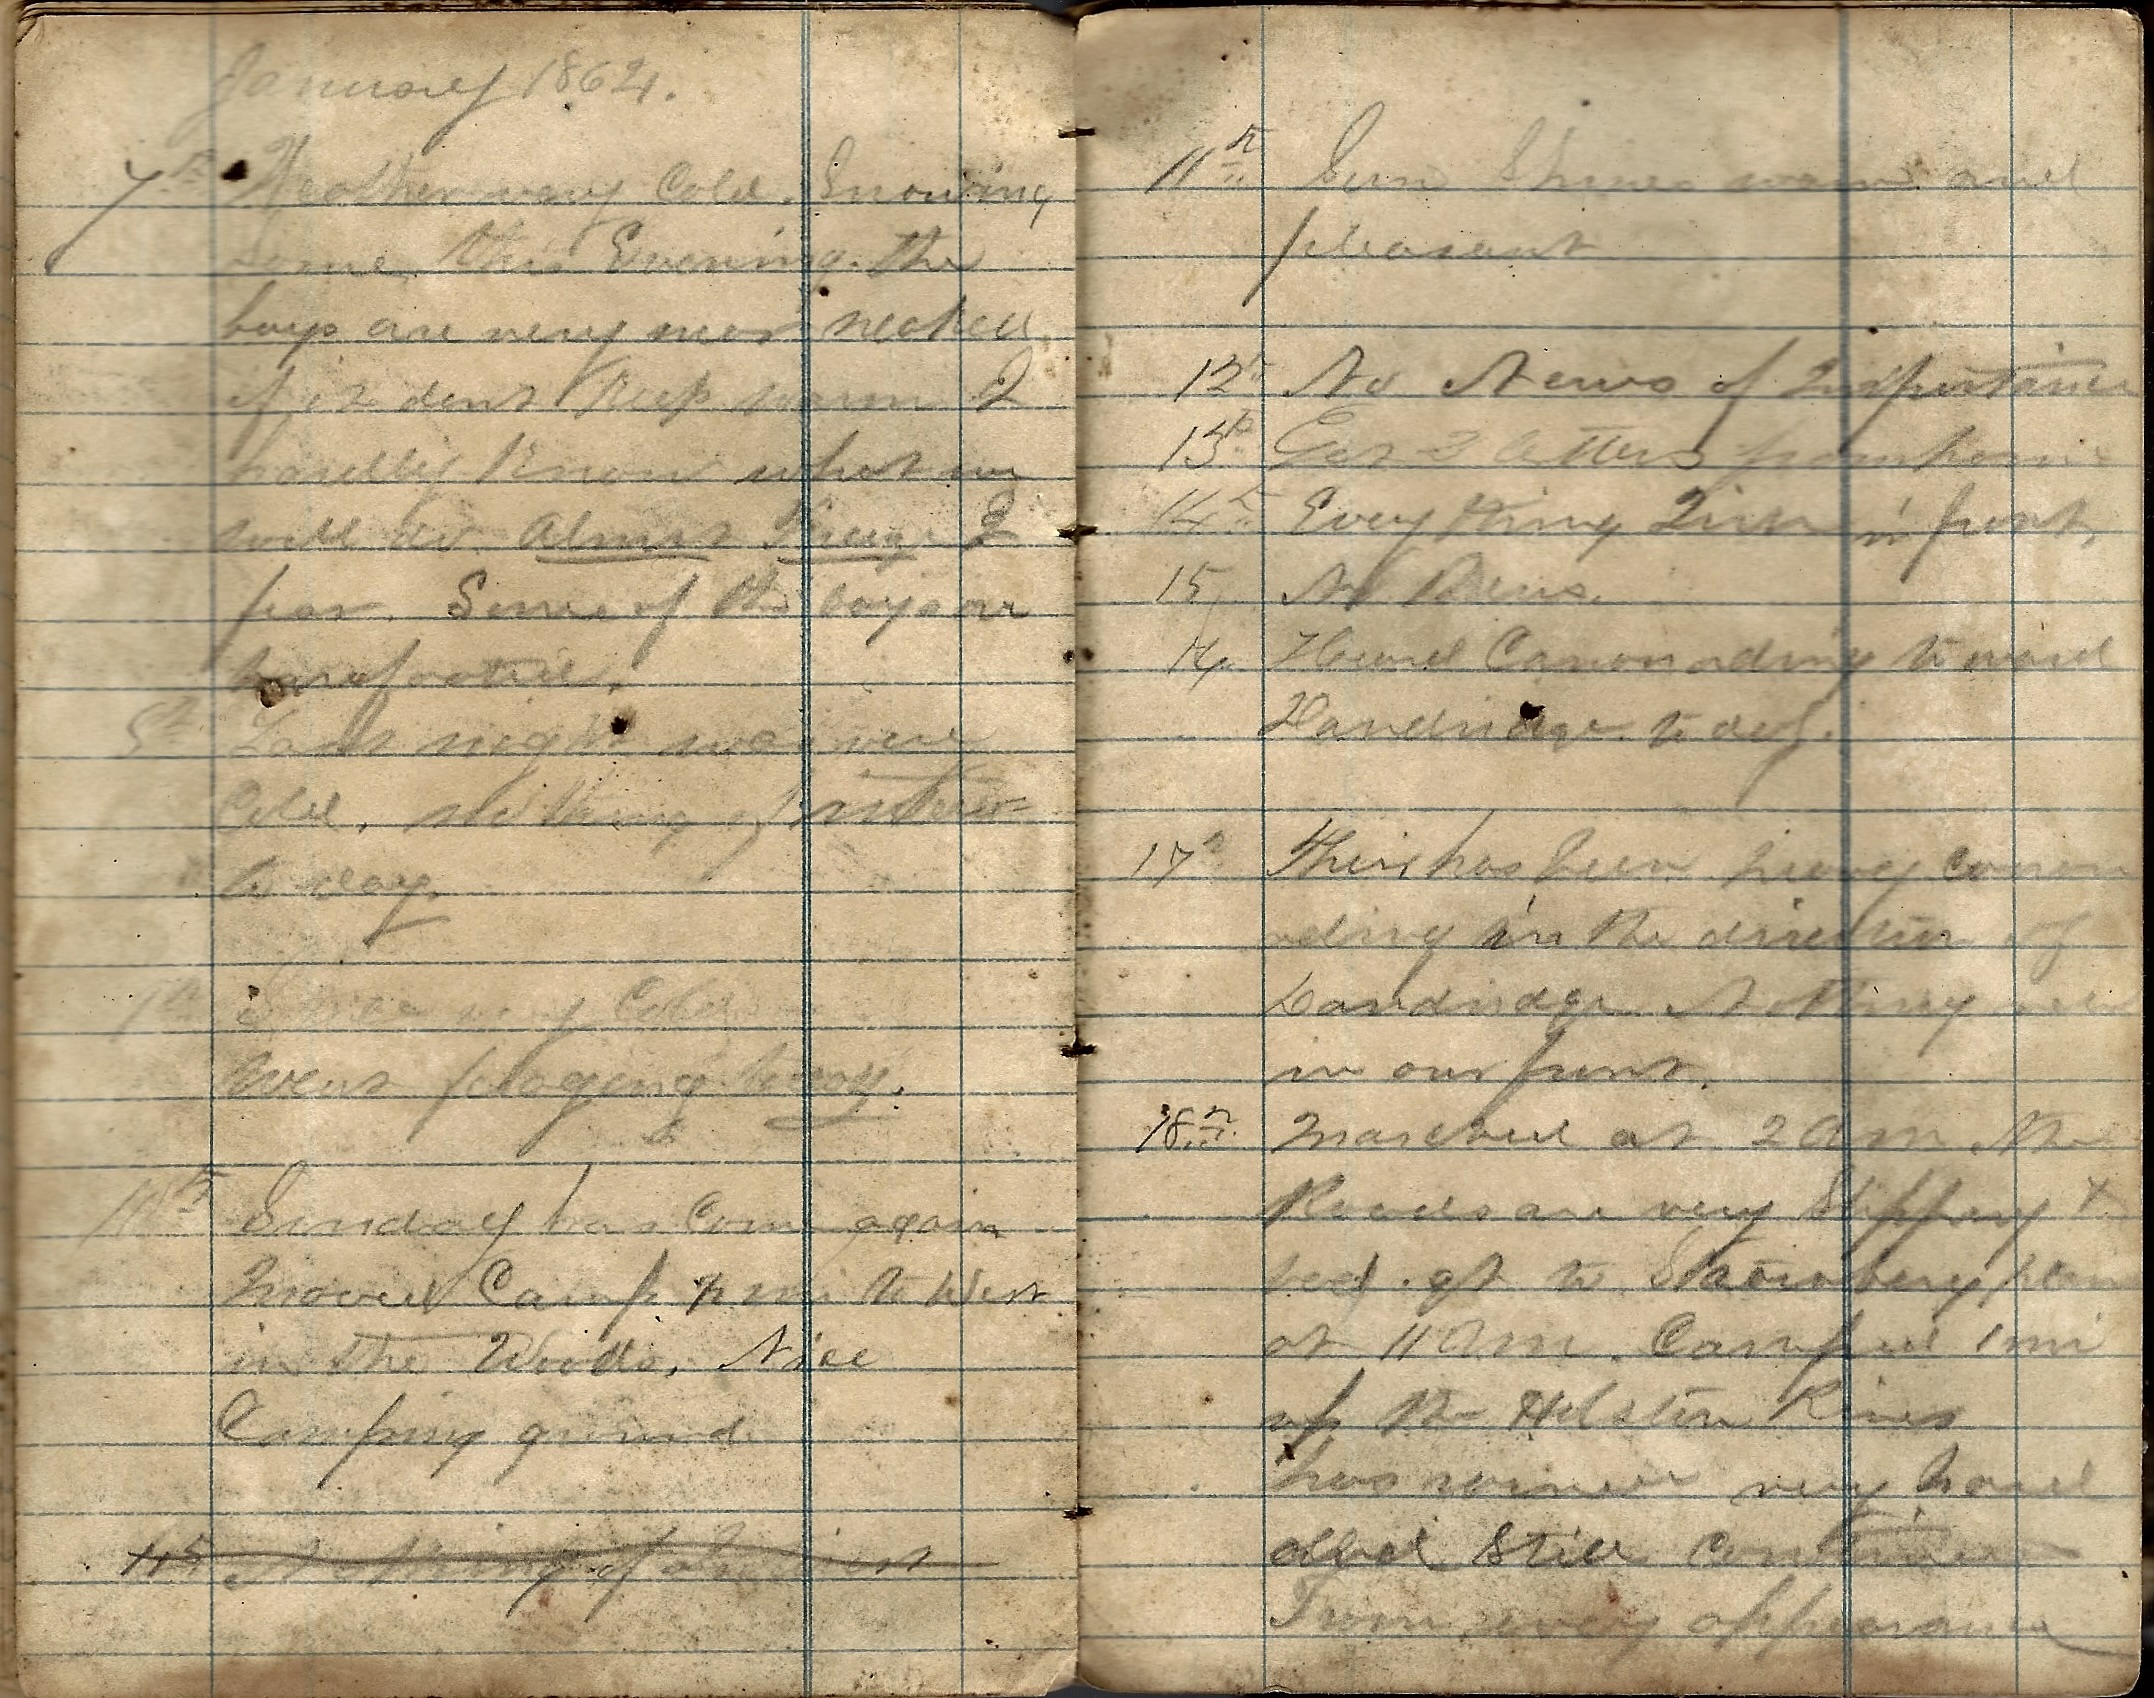 January 1864.
7th Weather very Cold. Snowing
some this Evening. the
boys are very near neaked
if it dont Keep warm I
hardly Know what we
will do. Almost Freeze I
fear. Some of the boys are
barefooted.
8th Last night was
Cold, nothing of interest
to day.
9th very Cold
Went forageing to day.
10th Sunday has Come again
Moved Camp mi to West
in the Woods, Nice
Camping ground
11th Nothing of Interest
11th Sun Shines warm and
pleasant
12th No News of Importance
13th Got 2 letters from home
14th Every thing Quiet in front,
15 No News.
16 Heard Canonading toward
Dandridge to day.
17th Their has been heavy canon
ading in the direction of
Dandridge. Nothing new
in our front.
18th Marched at 2 A.m. the
Roads are very Slippery &
bad. got to Strawbery plains
at 11 A.m. Camped 1 mi
up the Holston River
has rained very hard
all day & Still Continues
From every appearance